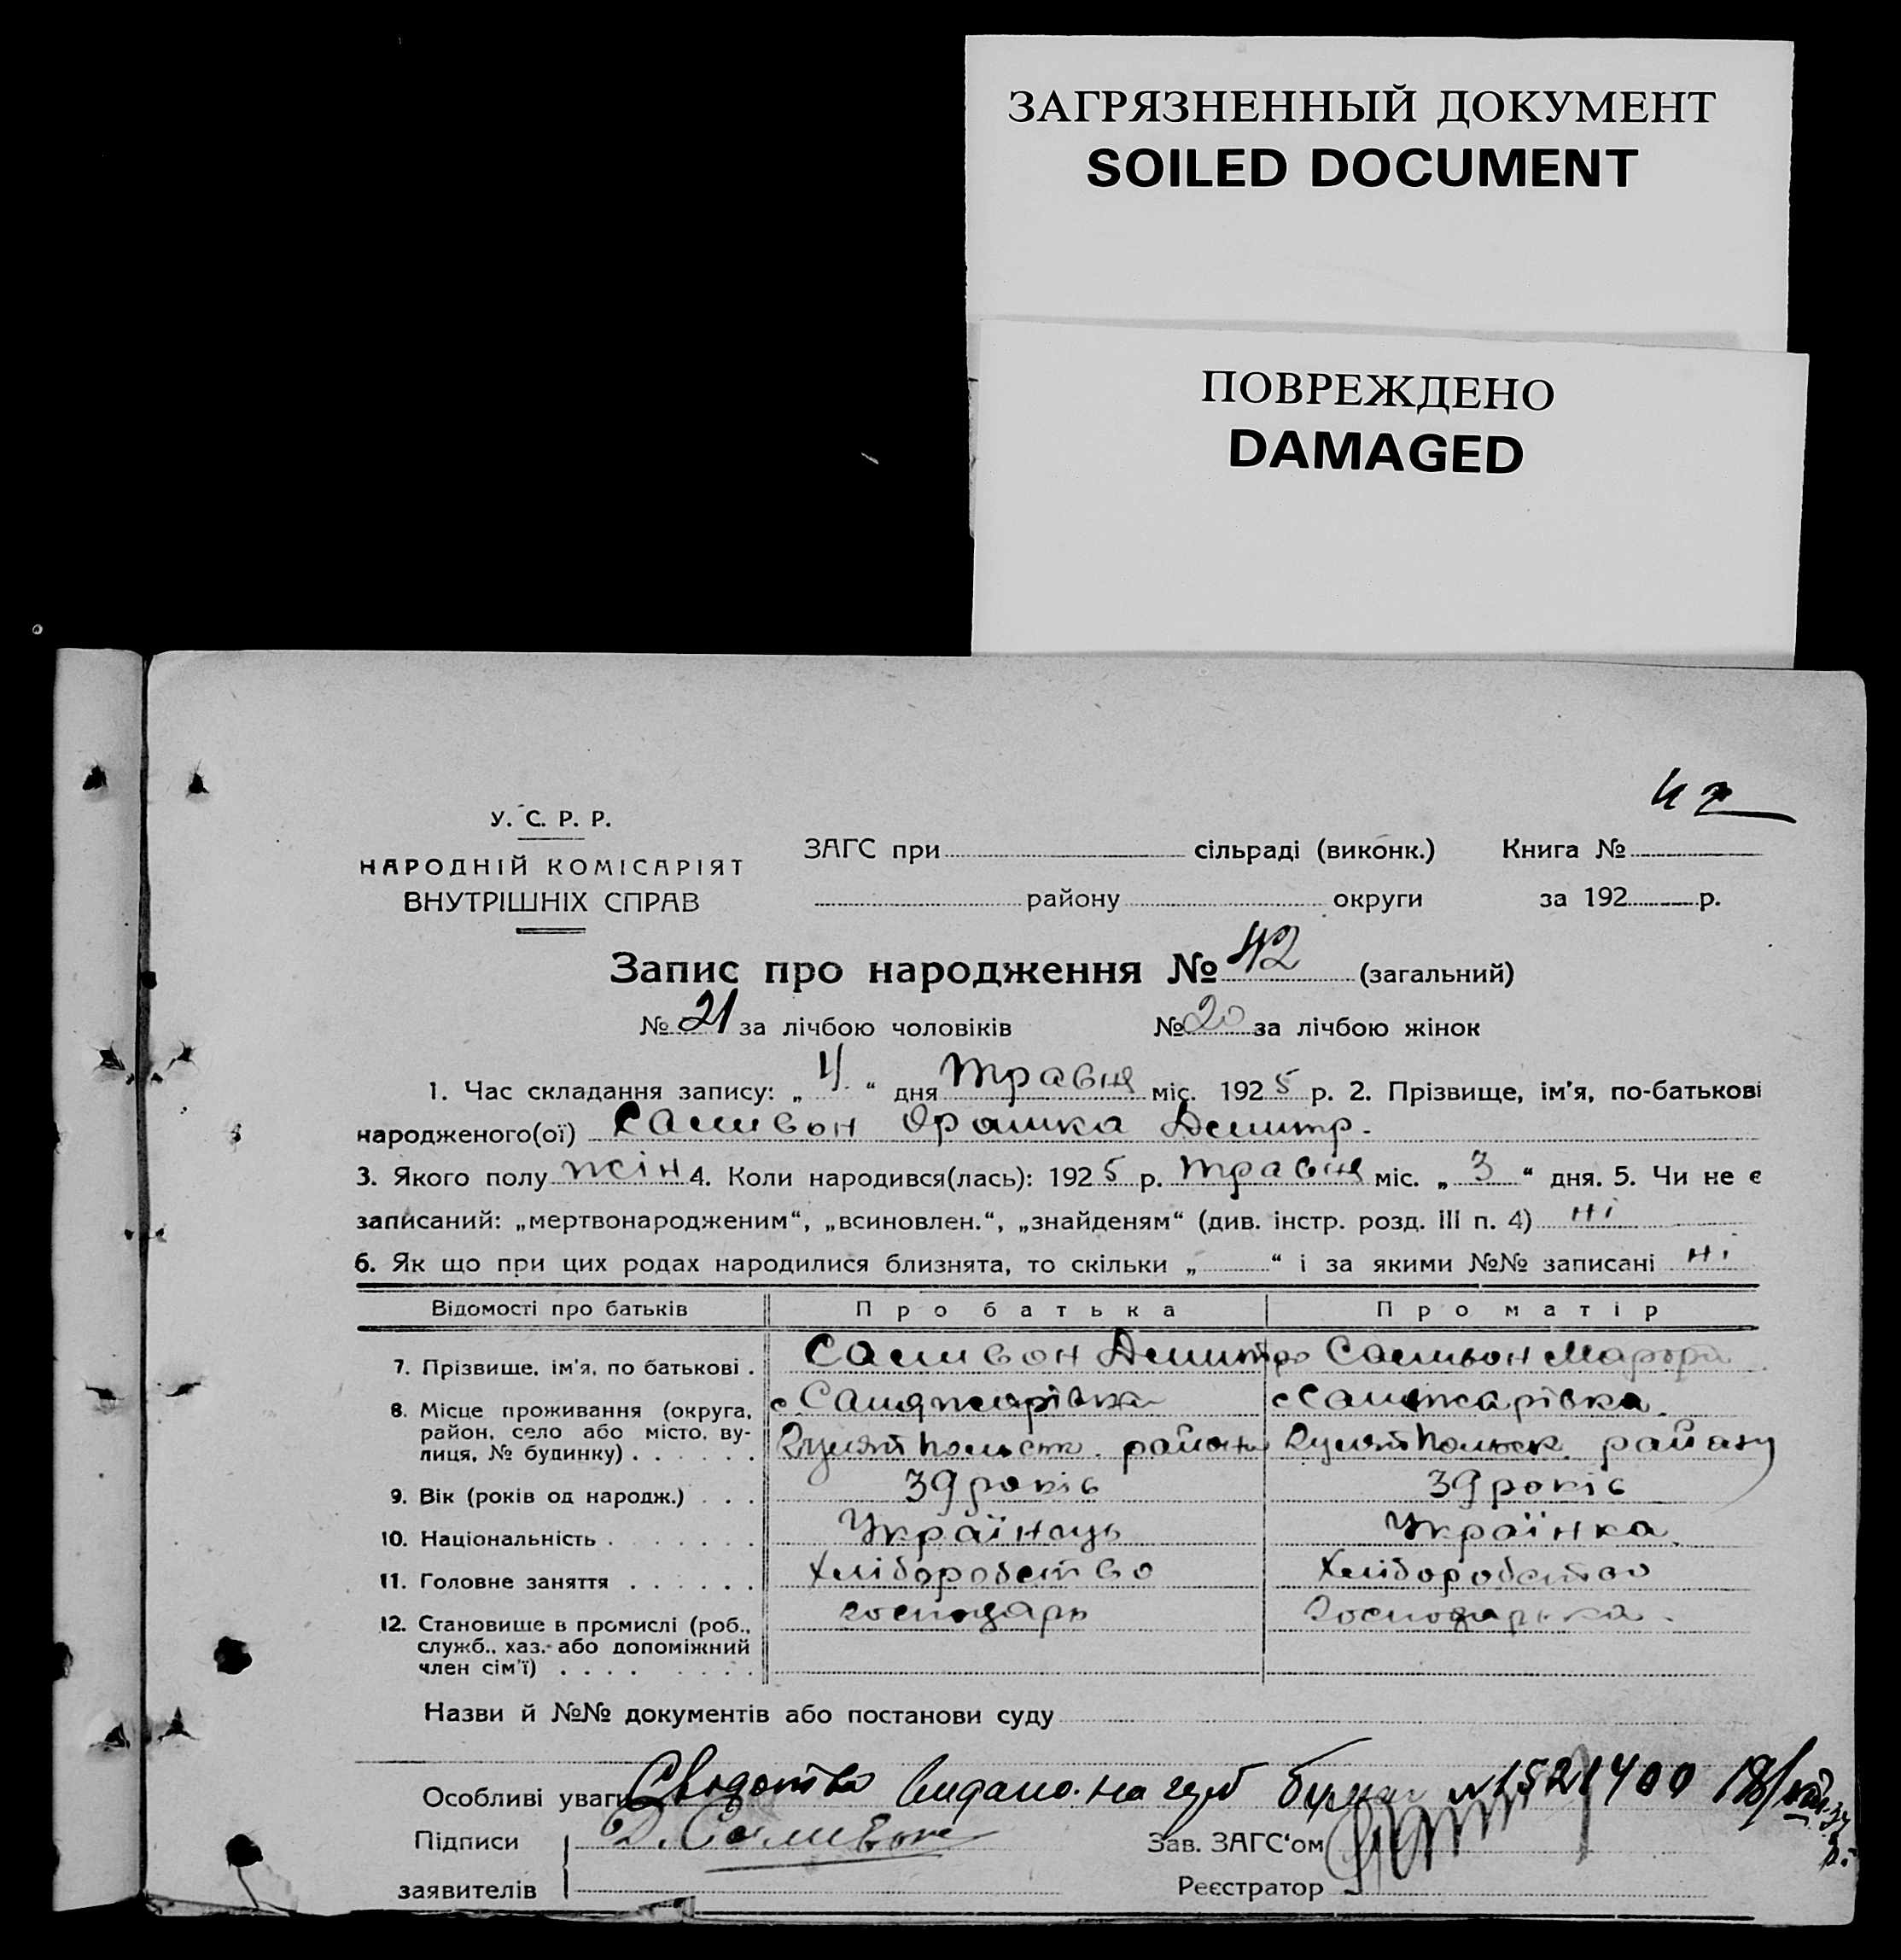 ЗАГРЯЗНЕННЫЙ ДОКУМЕНТ
SOILED DOCUMENT
ПОВРЕЖДЕНО
DAMAGED
У. С. Р. Р.
НАРОДНІЙ КОМІСАРІЯТ
ВНУТРІШНІХ СПРАВ
ЗАГС при сільраді (виконк.) Книга №
району округи за 192 р.
Запис про народження № 42 (загальний)
№ 21 за лічбою чоловіків № 20 за лічбою жінок
1. Час складання запису: „ 4 “ дня травня міс. 1925 р. 2. Прізвище, ім'я, по-батькові
народженого(ої) Саливон Дмитр.
3. Якого полу жін 4. Коли народився(лась): 1925 р. травня міс. „ 3 “ дня. 5. Чи не є
записаний: „мертвонародженим“, „всиновлен.“, „знайденям“ (див. інстр. розд. III п. 4) ні
6. Як що при цих родах народилися близнята, то скільки „ “ і за якими №№ записані ні
Відомості про батьків Про батька Про матір
7. Прізвище, ім'я, по батькові . Саливон Дмитро Саливон
8. Місце проживання (округа, район, село або місто, вулиця, № будинку) . . . . . . с с
району району
9. Вік (років од народж.) . . . 39 років 39 років
10. Національність . . . . . . . Українець Українка
11. Головне заняття . . . . . . Хліборобство Хліборобство
12. Становище в промислі (роб., служб., хаз. або допоміжний член сім'ї) . . . . . . . . господарь Господарька.
Назви й №№ документів або постанови суду
Особливі уваги Свідотство видано на
Підписи Д. Саливон Зав. ЗАГС‘ом
заявителів Реєстратор